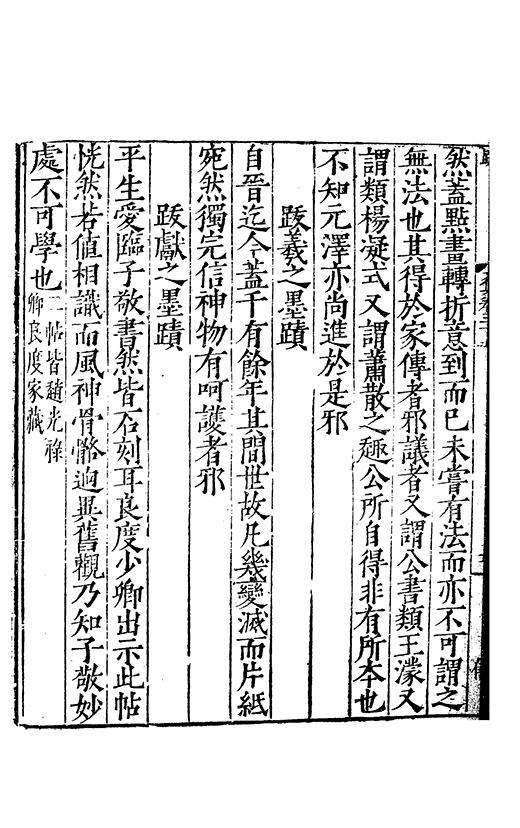 然蓋點畫轉折意到而已未嘗有法而亦不可謂之
無法也其得於家傳者邪議者又謂公書類王濛又
謂類楊凝式又謂蕭散之趣公所自得非有所本也
不知元澤亦尚進於是邪
跋羲之墨蹟
自晉迄今蓋千有餘年其間世故凡幾變滅而片紙
宛然獨完信神物有呵護者邪
跋獻之墨蹟
平生愛臨子敬書然皆石刻耳良度少卿出示此帖
恍然若值相識而風神骨骼逈異舊觀乃知子敬妙
處不可學也二帖皆趙光祿
卿良度家藏